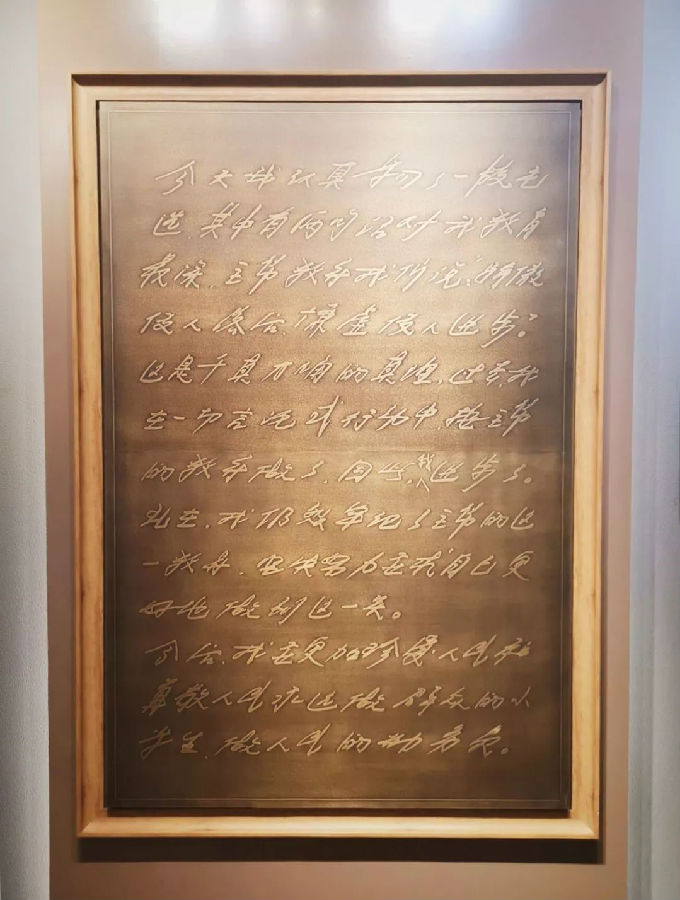 今天我认真学习了一段毛
选,其中有两句话对我教育
最深。主席教导我们说:“骄傲
使人落后,谦虚使人进步。”
这是千真万确的真理。过去我
在一切言论或行动中,按主席
的教导做了,因此,我进步了。
现在,我仍然牢记了主席的这
一教导,坚决努力要求自己更
好地做到这一点。
今后,我要更加珍爱人民和
尊敬人民,永远做群众的小
学生,做人民的勤务员。